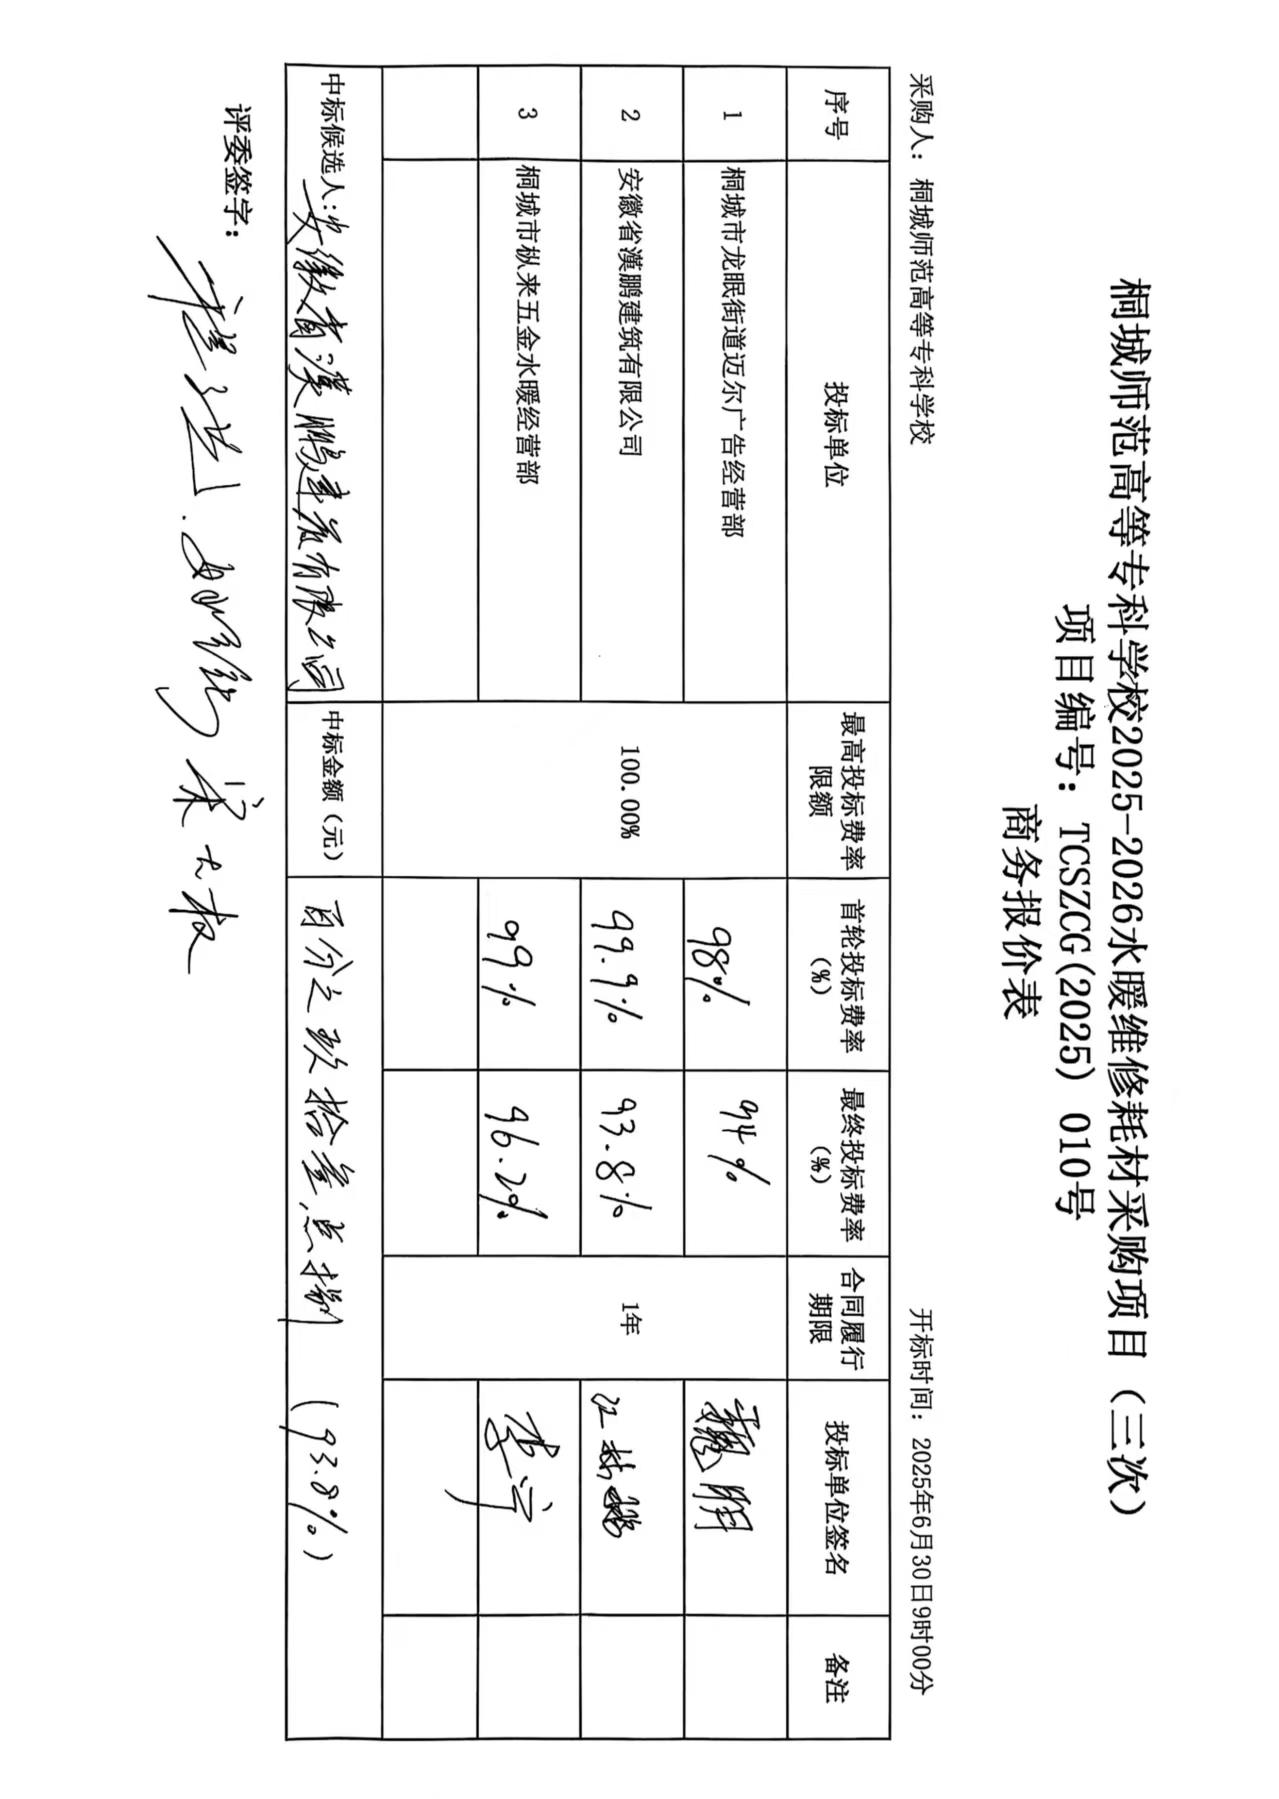 桐城师范高等专科学校2025-2026水暖维修耗材采购项目（三次）
项目编号：TCSZCG(2025) 010号
商务报价表
采购人：桐城师范高等专科学校 开标时间：2025年6月30日9时00分
序号 投标单位 最高投标费率限额 首轮投标费率（%） 最终投标费率（%） 合同履行期限 投标单位签名 备注
1 桐城市龙眠街道迈尔广告经营部 98% 94%
2 安徽省漢鹏建筑有限公司 100.00% 99.9% 93.8% 1年
3 桐城市枞来五金水暖经营部 99% 96.2%
中标候选人：安徽省漢鹏建筑有限公司 中标金额（元） 百分之玖拾叁点捌 （93.8%）
评委签字：